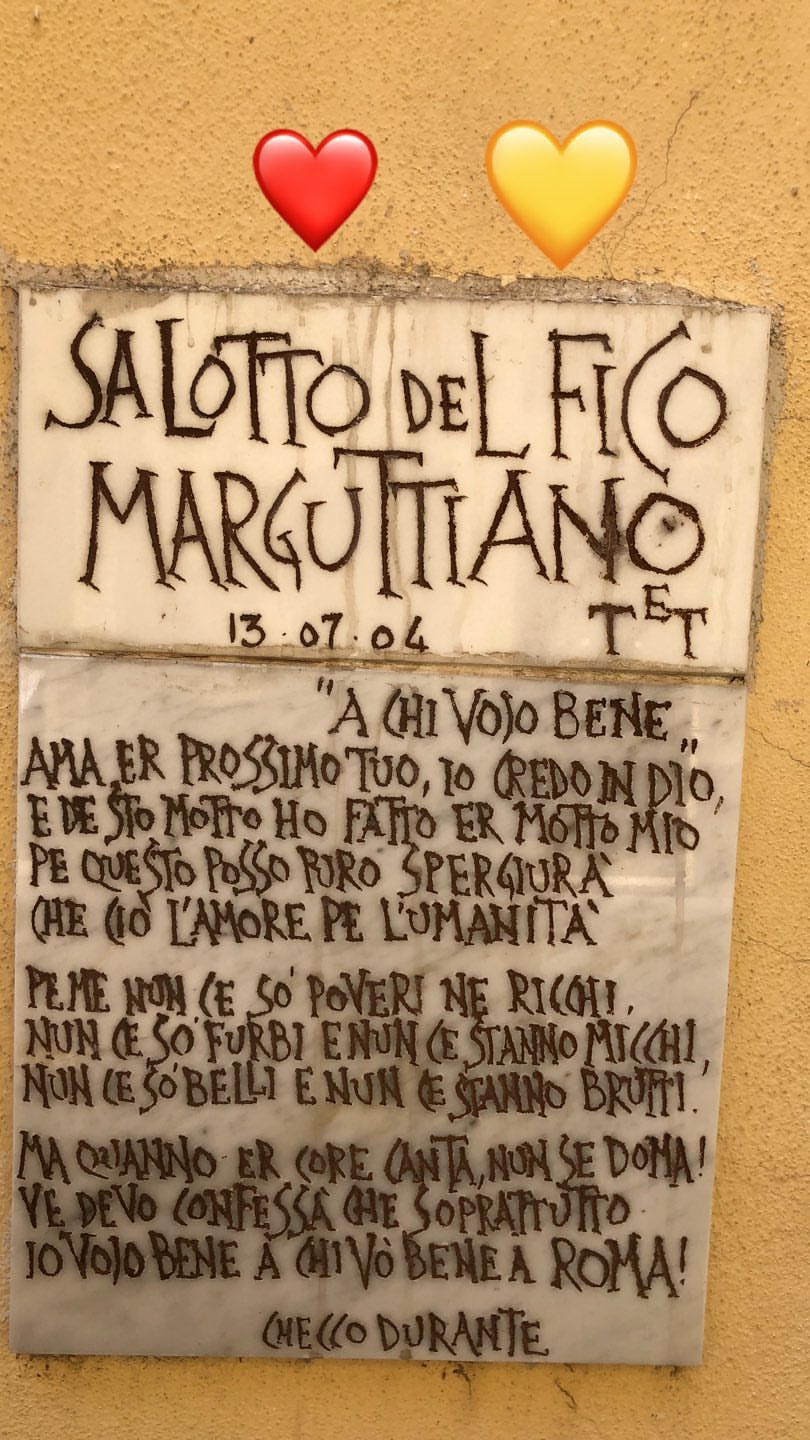 SALOTTO DEL FICO
MARGUTTIANO
13·07·04 TET
"A CHI VOJO BENE„
AMA ER PROSSIMO TUO, IO CREDO IN DIO,
E DE STO MOTTO HO FATTO ER MOTTO MIO
PE QUESTO POSSO PURO SPERGIURÀ
CHE CIÒ L'AMORE PE L'UMANITÀ
PE ME NUN CE SO' POVERI NE RICCHI,
NUN CE SO' FURBI E NUN CE STANNO MICCHI,
NUN CE SO' BELLI E NUN CE STANNO BRUTTI.
MA QUANNO ER CORE CANTA, NUN SE DOMA!
VE DEVO CONFESSÀ CHE SOPRATTUTTO
IO VOJO BENE A CHI VÒ BENE A ROMA!
CHECCO DURANTE